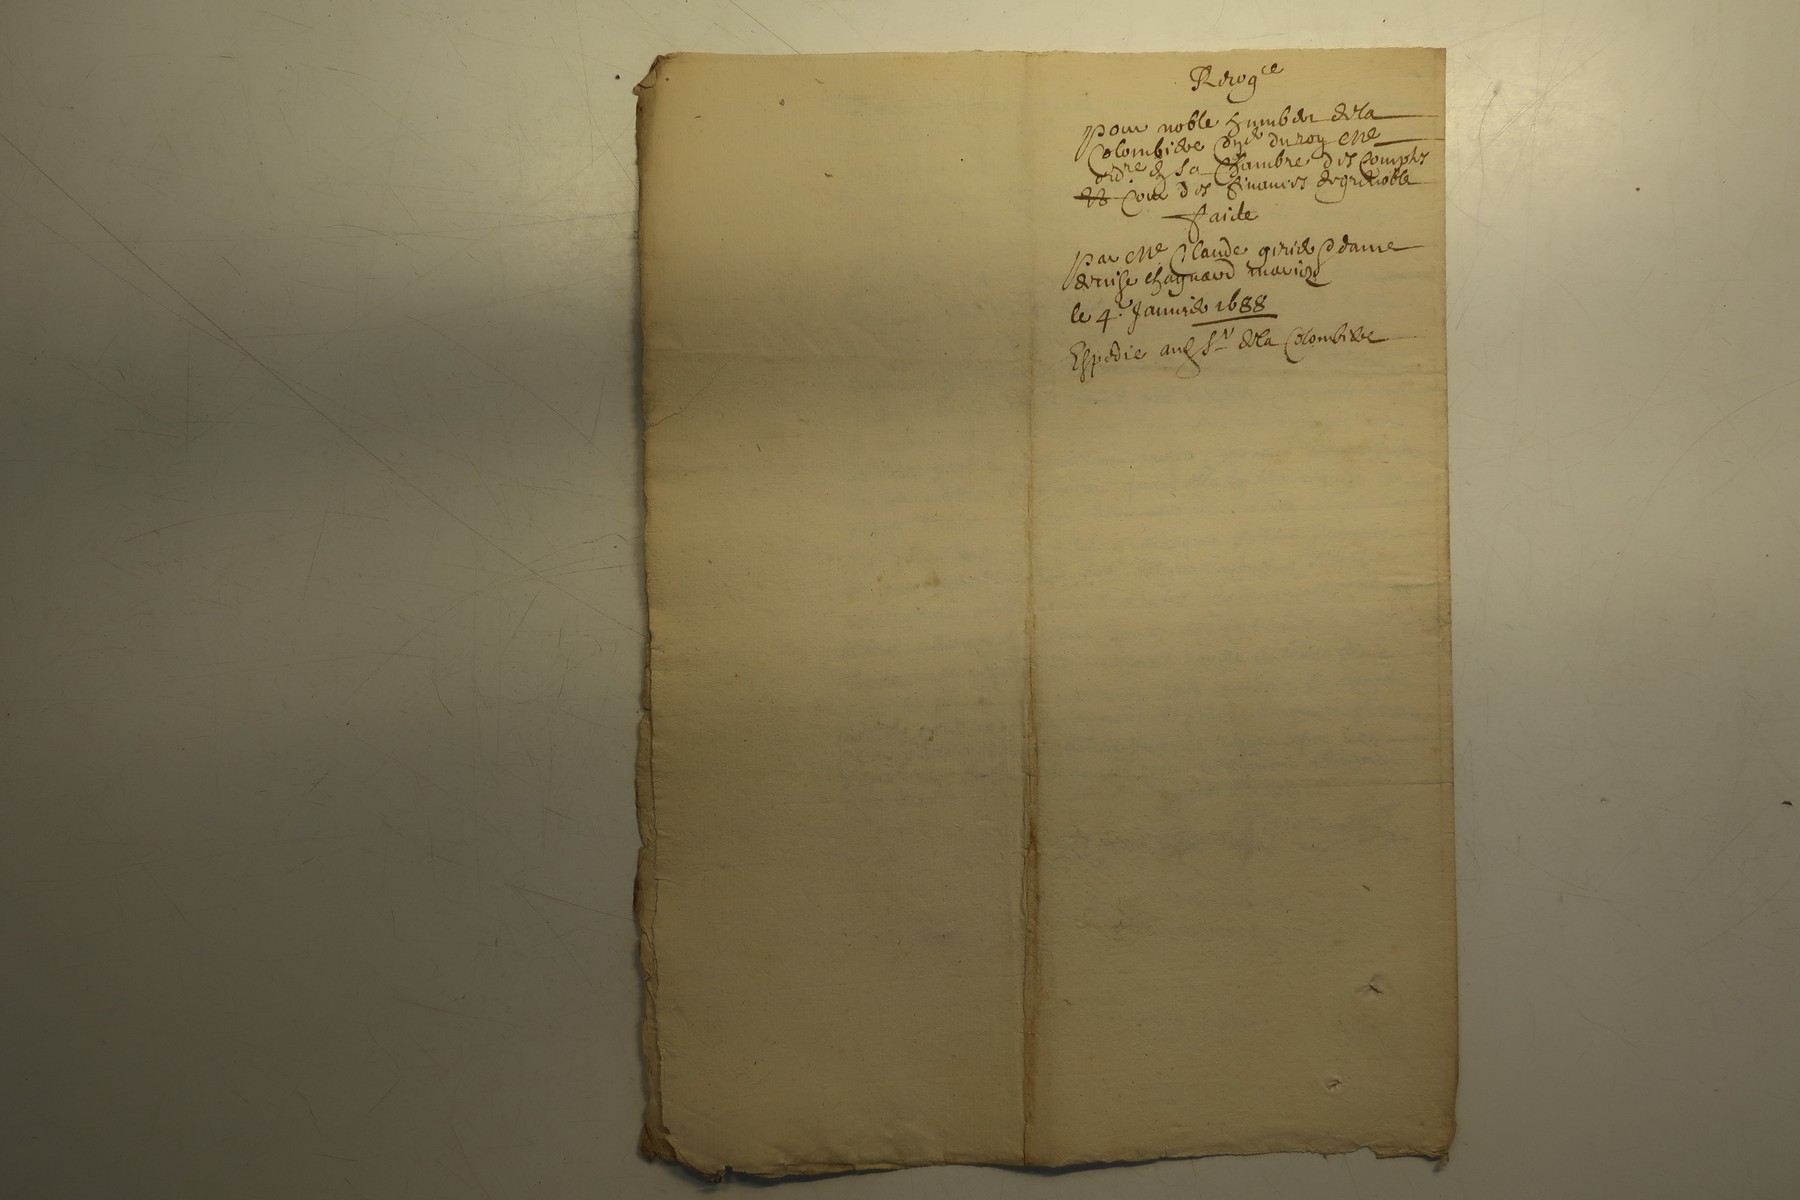 Recog^ce
pour noble humber de la
Colombiere Con^er du roy M^e
ord^re en sa Chambre des Comptes
Cour des finances de grenoble
faicte
par M^e Claude girier & dame
denise chagnard mariez
le 4^e Janvier 1688
Expedié aud S^r de la Colombiere